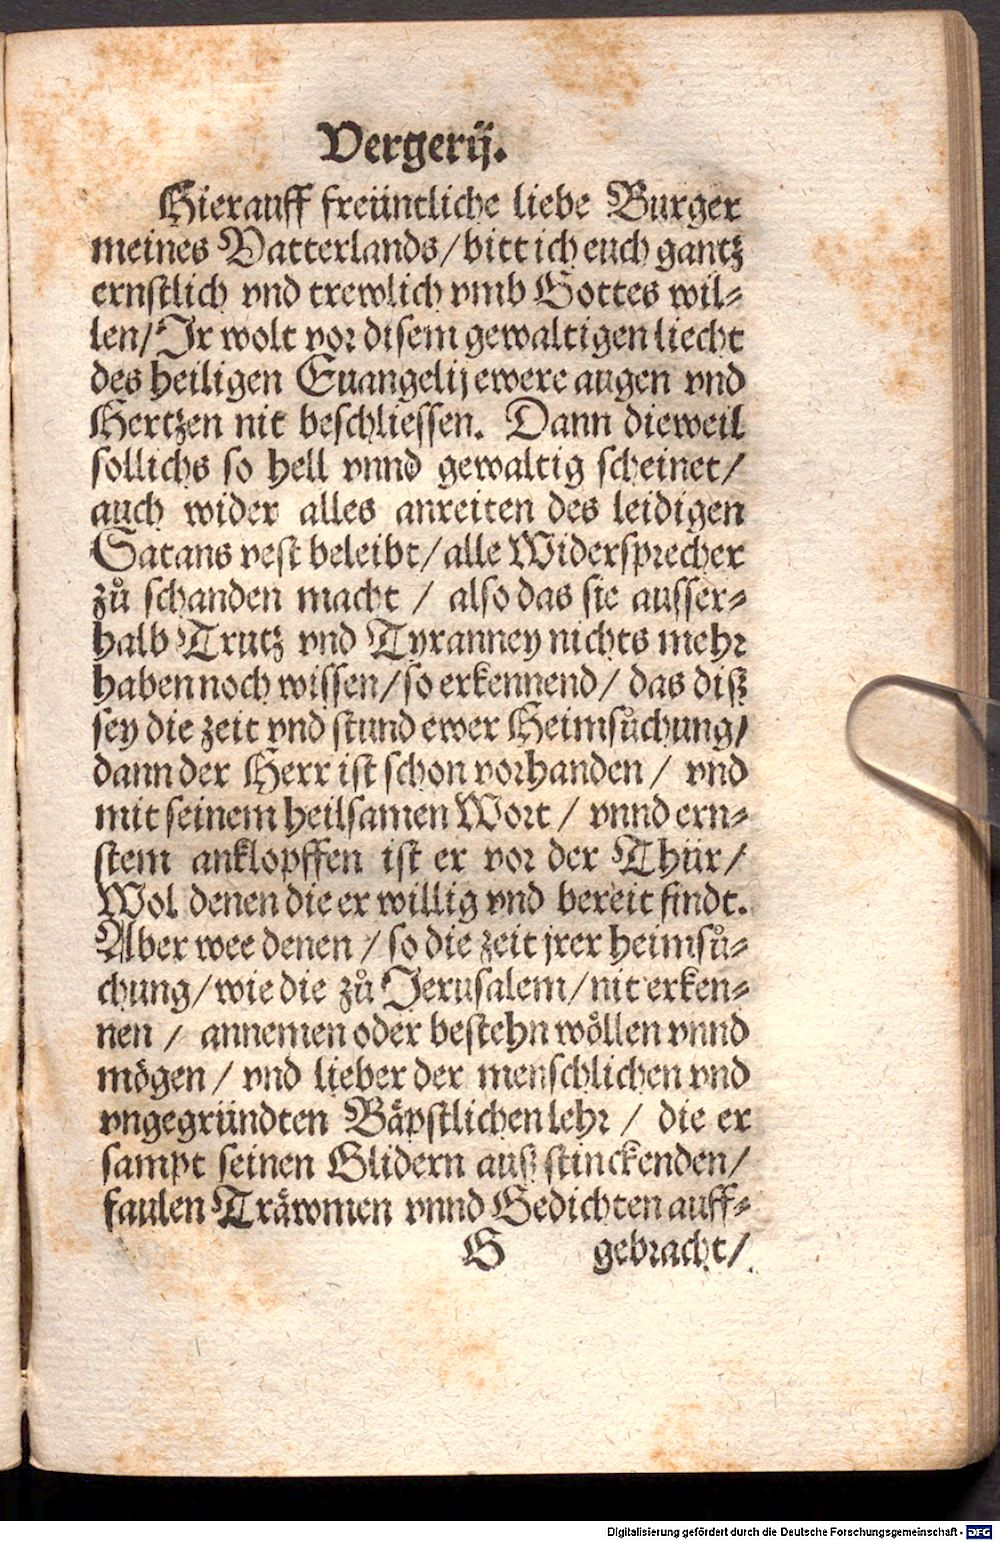 Vergerij.
Hierauff freüntliche liebe Burger
meines Vatterlands/bitt ich euch gantz
ernstlich vnd trewlich vmb Gottes wil-
len/Ir wolt vor disem gewaltigen liecht
des heiligen Euangelij ewere augen vnd
Hertzen nit beschliessen. Dann dieweil
sollichs so hell vnnd gewaltig scheinet/
auch wider alles anreiten des leidigen
Satans vest beleibt/alle Widersprecher
zů schanden macht / also das sie ausser-
halb Trutz vnd Tyranney nichts mehr
haben noch wissen/so erkennend/ das diß
sey die zeit vnd stund ewer Heimsůchung/
dann der Herr ist schon vorhanden / vnd
mit seinem heilsamen Wort / vnnd ern-
stem anklopffen ist er vor der Thür/
Wol denen die er willig vnd bereit findt.
Aber wee denen / so die zeit jrer heimsů-
chung/wie die zů Jerusalem/nit erken-
nen / annemen oder bestehn wöllen vnnd
mögen / vnd lieber der menschlichen vnd
vngegründten Bäpstlichen lehr / die er
sampt seinen Glidern auß stinckenden/
faulen Träwmen vnnd Gedichten auff-
G gebracht/
Digitalisierung gefördert durch die Deutsche Forschungsgemeinschaft - DFG